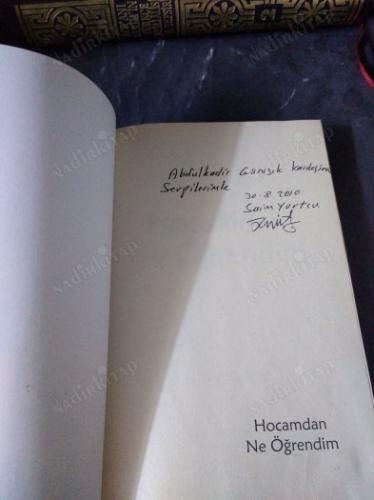 2
Abdulkadir Günışık Kardeşime
Sevgilerimle
30-8-2010
Saim Yurtcu
Hocamdan
Ne Öğrendim
NADİRKİTAP